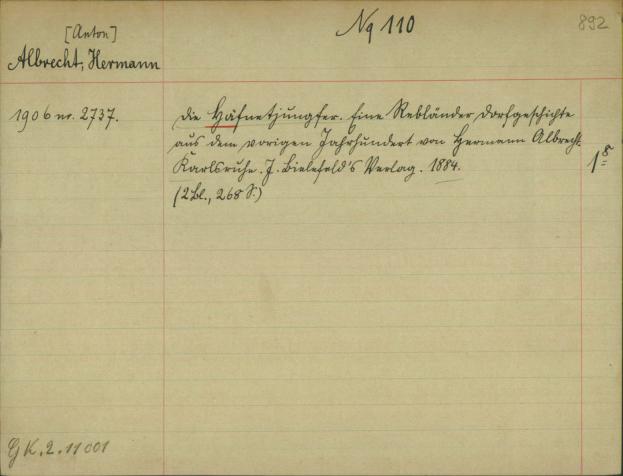 [Anton]
Albrecht, Hermann
Nq 110
892
1906 nr. 2737.
Die Häfnetjungfer. Eine Rebländer Dorfgeschichte
aus dem vorigen Jahrhundert von Hermann Albrecht.
Karlsruhe. J. Bielefeld's Verlag. 1884.
(2 Bl., 268 S.)
1 8
GK. 2. 11001